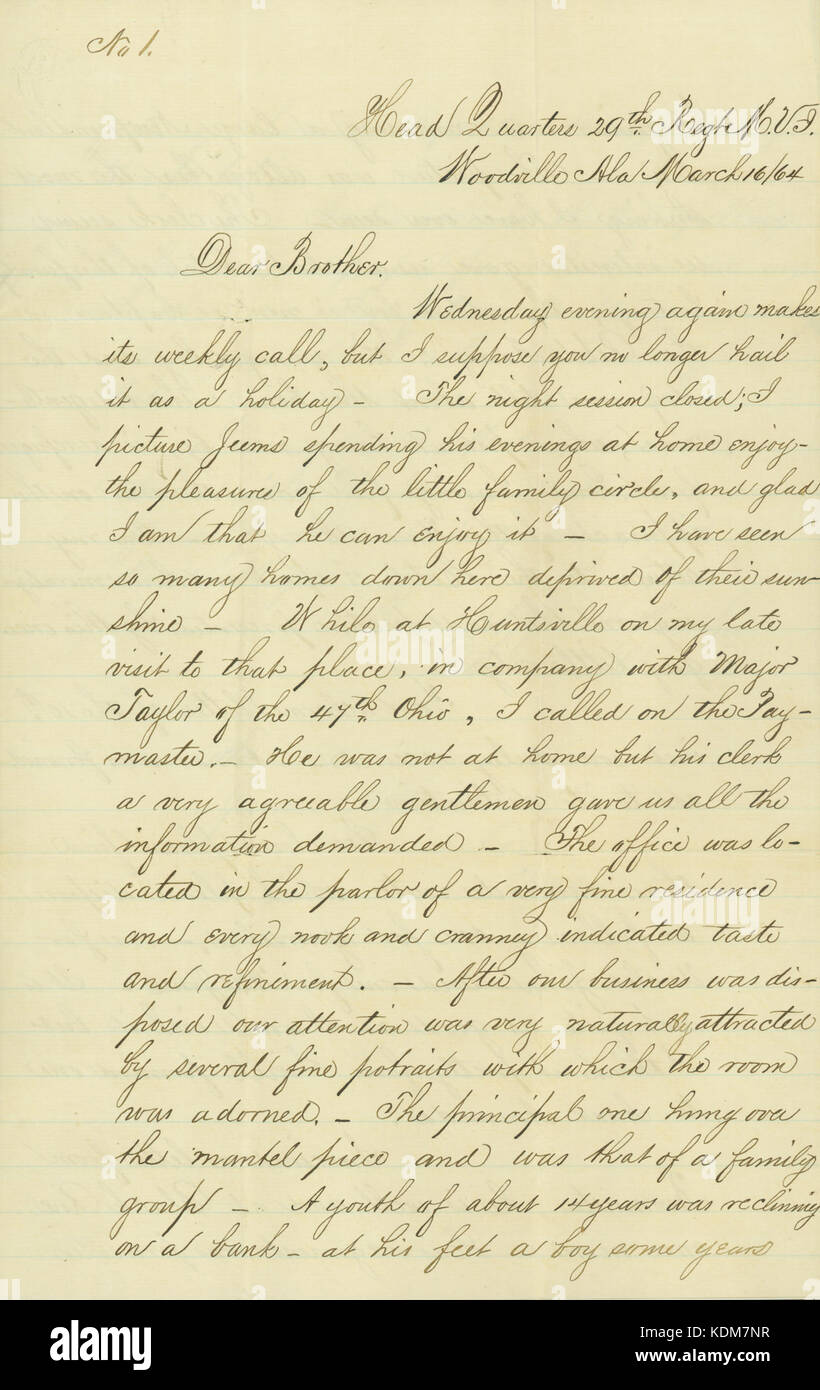 No 1.
Head Quarters 29th Regt M.V.I.
Woodville Ala March 16/64
Dear Brother.
Wednesday evening again makes
its weekly call, but I suppose you no longer hail
it as a holiday – The night session closed; I
picture Jeems spending his evenings at home enjoy-
the pleasures of the little family circle, and glad
I am that he can enjoy it – I have seen
so many homes down here deprived of their sun-
shine – While at Huntsville on my late
visit to that place, in company with Major
Taylor of the 47th Ohio, I called on the Pay-
master. – He was not at home but his clerk
a very agreeable gentlemen gave us all the
information demanded – The office was lo-
cated in the parlor of a very fine residence
and every nook and cranney indicated taste
and refiniment. – After our business was dis-
posed our attention was very naturally attracted
by several fine potraits with which the room
was adorned. – The principal one hung over
the mantel piece and was that of a family
group – A youth of about 14 years was reclining
on a bank – at his feet a boy some years
alamy
alamy
alamy
alamy
Image ID: KDM7NR
www.alamy.com